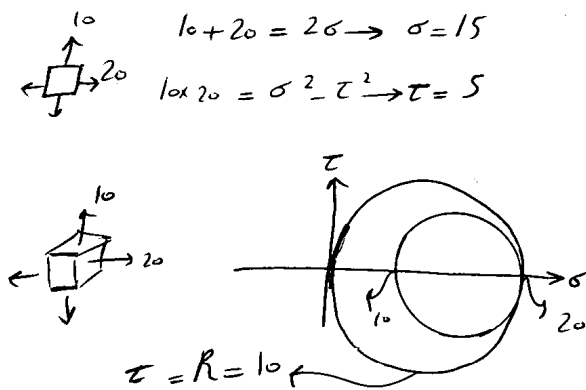 10
20
10+20 = 2σ → σ=15
10×20 = σ² - τ² → τ = 5
10
20
τ
σ
10
20
τ = R = 10